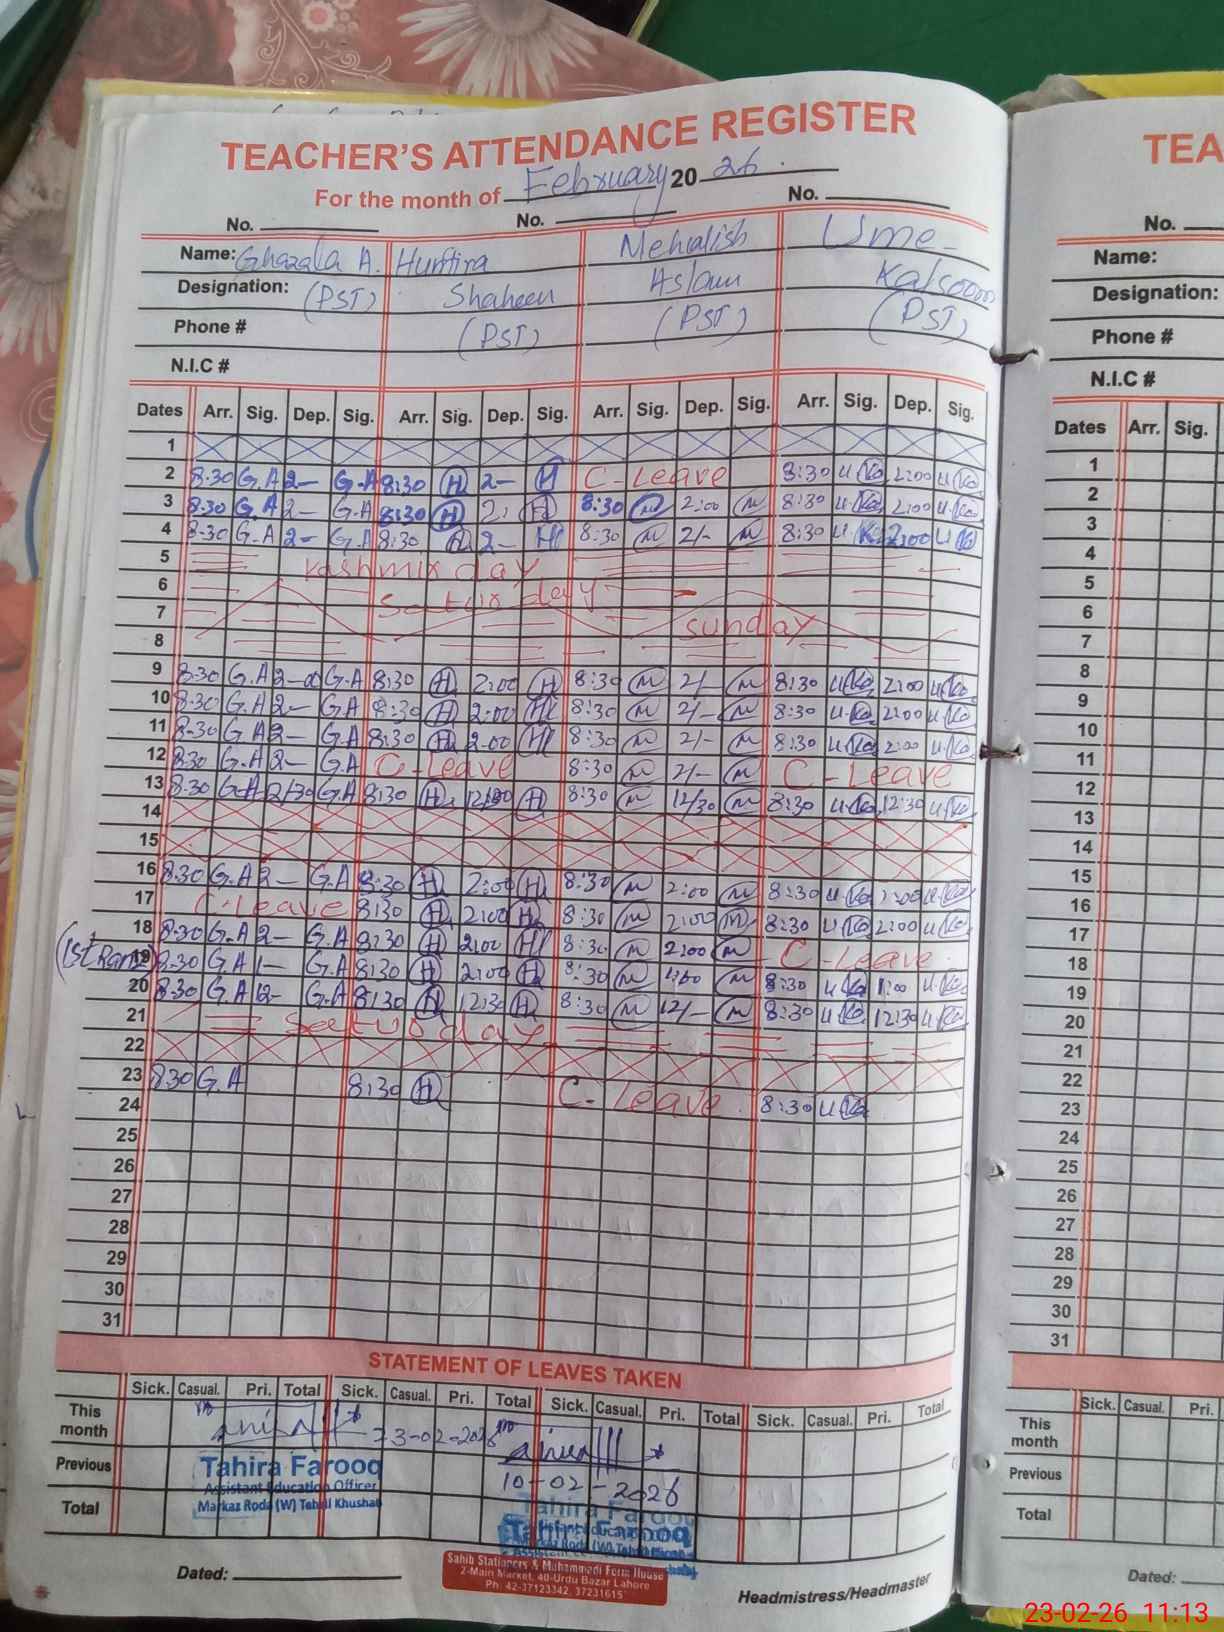 TEACHER'S ATTENDANCE REGISTER
For the month of February 20 26.
No. No. No.
Name: Ghazala A. Humira Mehalish Ume-
Designation: (PST) Shaheen Aslam Kalsoom
Phone # (PST) (PST) (PST)
N.I.C #
Dates Arr. Sig. Dep. Sig. Arr. Sig. Dep. Sig. Arr. Sig. Dep. Sig. Arr. Sig. Dep. Sig.
1
2 8:30 G.A 2- G.A 8:30 H 2- H C-Leave 8:30 U Ka 2:00 U Ka
3 8:30 G.A 2- G.A 8:30 H 2: H 8:30 M 2:00 M 8:30 U Ka 2:00 U Ka
4 8:30 G.A 2- G.A 8:30 H 2- H 8:30 M 2/- M 8:30 U Ka 2:00 U Ka
5 Kashmir day
6 Saturday
7
8 Sunday
9 8:30 G.A 2-00 G.A 8:30 H 2:00 H 8:30 M 2/- M 8:30 U Ka 2:00 U Ka
10 8:30 G.A 2- G.A 8:30 H 2:00 H 8:30 M 2/- M 8:30 U Ka 2:00 U Ka
11 8:30 G.A 2- G.A 8:30 H 2:00 H 8:30 M 2/- M 8:30 U Ka 2:00 U Ka
12 8:30 G.A 2- G.A C-Leave 8:30 M 2/- M C-Leave
13 8:30 G.A 12/30 G.A 8:30 H 12:30 H 8:30 M 12/30 M 8:30 U Ka 12:30 U Ka
14
15
16 8:30 G.A 2- G.A 8:30 H 2:00 H 8:30 M 2:00 M 8:30 U Ka 2:00 U Ka
17 C-Leave 8:30 H 2:00 H 8:30 M 2:00 M 8:30 U Ka 2:00 U Ka
18 8:30 G.A 2- G.A 8:30 H 2:00 H 8:30 M 2:00 M C-Leave
(1st Ramz) 19 8:30 G.A 1- G.A 8:30 H 2:00 H 8:30 M 1:00 M 8:30 U Ka 1:00 U Ka
20 8:30 G.A 12- G.A 8:30 H 12:30 H 8:30 M 12/- M 8:30 U Ka 12:30 U Ka
21 Saturday
22
23 8:30 G.A 8:30 H C-Leave 8:30 U Ka
24
25
26
27
28
29
30
31
STATEMENT OF LEAVES TAKEN
Sick. Casual. Pri. Total Sick. Casual. Pri. Total Sick. Casual. Pri. Total Sick. Casual. Pri. Total
This month
Previous
Total
10-02-2026
Tahira Farooq
Assistant Education Officer
Markaz Roda (W) Tehsil Khushab
Tahira Farooq
Dated:
Sahib Stationers & Muhammadi Form House
2-Main Market, 40-Urdu Bazar Lahore
Ph: 42-37123342, 37231615
Headmistress/Headmaster
TEA
No.
Name:
Designation:
Phone #
N.I.C #
Dates Arr. Sig.
1
2
3
4
5
6
7
8
9
10
11
12
13
14
15
16
17
18
19
20
21
22
23
24
25
26
27
28
29
30
31
Sick. Casual. Pri.
This month
Previous
Total
Dated:
23-02-26 11:13